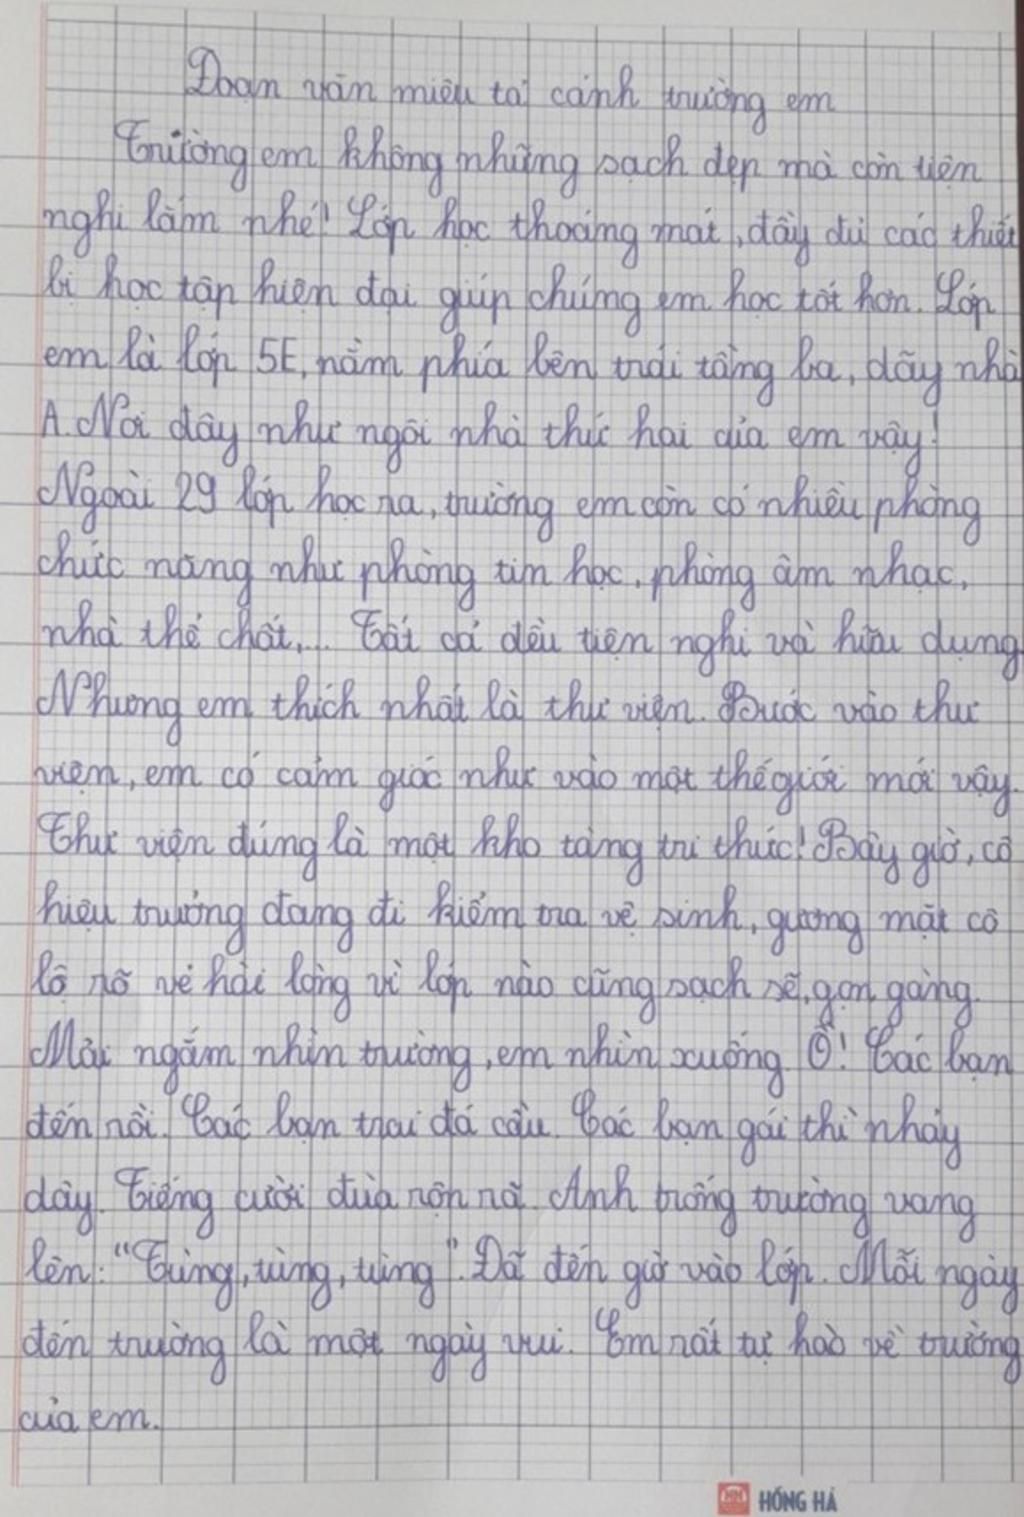 Đoạn văn miêu tả cảnh trường em
Trường em không những sạch đẹp mà còn tiện
nghi lắm nhé! Lớp học thoáng mát, đầy đủ các thiết
bị học tập hiện đại giúp chúng em học tốt hơn. Lớp
em là lớp 5E, nằm phía bên trái tầng ba, dãy nhà
A. Nơi đây như ngôi nhà thứ hai của em vậy!
Ngoài 29 lớp học ra, trường em còn có nhiều phòng
chức năng như phòng tin học, phòng âm nhạc,
nhà thể chất,... Tất cả đều tiện nghi và hữu dụng
Nhưng em thích nhất là thư viện. Bước vào thư
viện, em có cảm giác như vào một thế giới mới vậy.
Thư viện đúng là một kho tàng tri thức! Bây giờ, cô
hiệu trưởng đang đi kiểm tra vệ sinh, gương mặt cô
lộ rõ vẻ hài lòng vì lớp nào cũng sạch sẽ, gọn gàng.
Mải ngắm nhìn trường, em nhìn xuống. Ồ! Các bạn
đến rồi. Các bạn trai đá cầu. Các bạn gái thì nhảy
dây. Tiếng cười đùa rộn rã. Anh trống trường vang
lên: "Tùng, tùng, tùng". Đã đến giờ vào lớp. Mỗi ngày
đến trường là một ngày vui. Em rất tự hào về trường
của em.
HỒNG HÀ